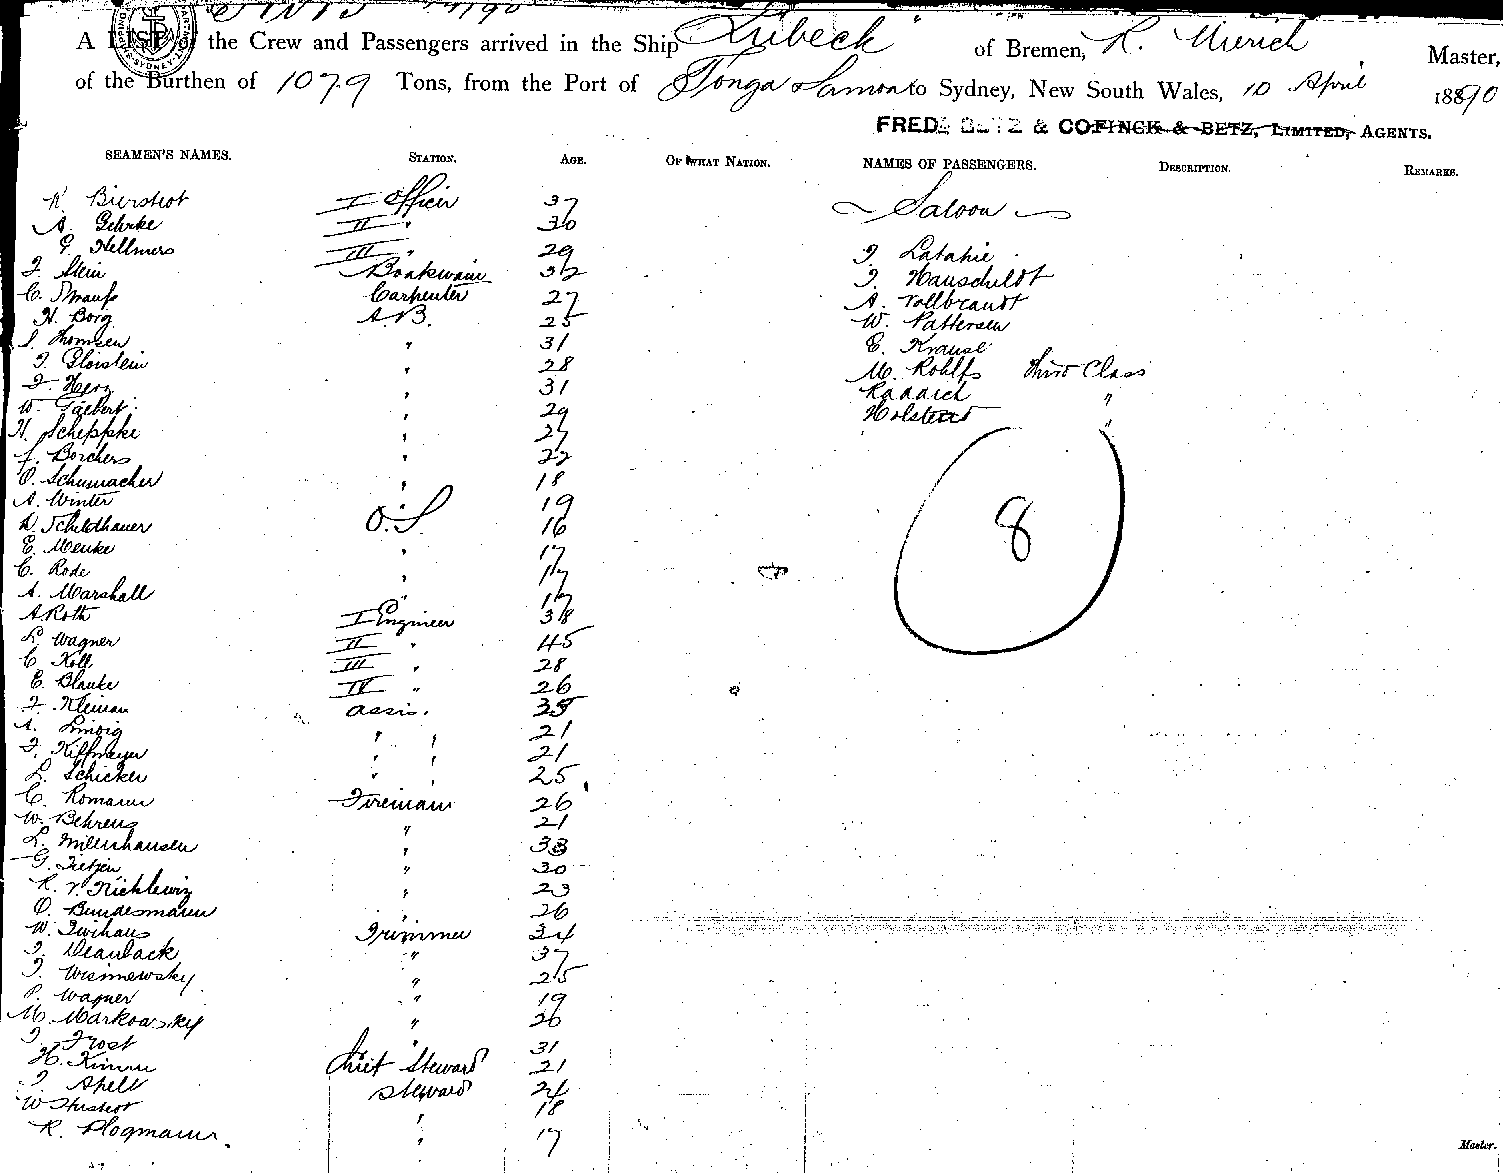 A LIST of the Crew and Passengers arrived in the Ship Lübeck of Bremen, R. Mierich Master,
of the Burthen of 1079 Tons, from the Port of Tonga Samoa to Sydney, New South Wales, 10 April 1890
FRED. BETZ & CO FINCK & BETZ, LIMITED, AGENTS.
SEAMEN'S NAMES. STATION. AGE. OF WHAT NATION. NAMES OF PASSENGERS. DESCRIPTION. REMARKS.
Saloon
I Officer 37
A. Gehrke II " 30
G. Hellmers III " 29
J. Stein Boatswain 32
C. Strauss Carpenter 27
H. Borg A.B. 25
J. Thomsen " 31
J. Gloistein " 28
J. Herz " 31
W. Taebert " 29
H. Scheppke " 27
J. Borchers " 22
O. Schumacher " 18
A. Winter " 19
D. Schildhauer O.S 16
E. Menke " 17
C. Rode " 17
A. Marshall " 17
A. Roth I Engineer 38
L. Wagner II " 45
C. Koll III " 28
E. Blanke IV " 26
J. Kleinau assis. 35
A. " " 21
J. Kiffmeyer " " 21
L. Schicker " " 25
C. Romann Fireman 26
W. Behrens " 21
L. Milenhausen " 33
G. Tietjen " 30
R. v. " 23
O. Bundesmann " 26
W. Twihaus Trimmer 34
J. " 37
J. Wisinewsky " 25
P. Wagner " 19
M. Markowsky " 26
J. Frost " 31
H. Kimm Chief Steward 21
J. Apell Steward 24
W " 18
R. Plogmann " 17
J. Latahie
J. Hauschildt
A. Vollbrandt
W. Pattersen
E. Krause
M. Rohlfs Third Class
"
Holstein "
8
Master.